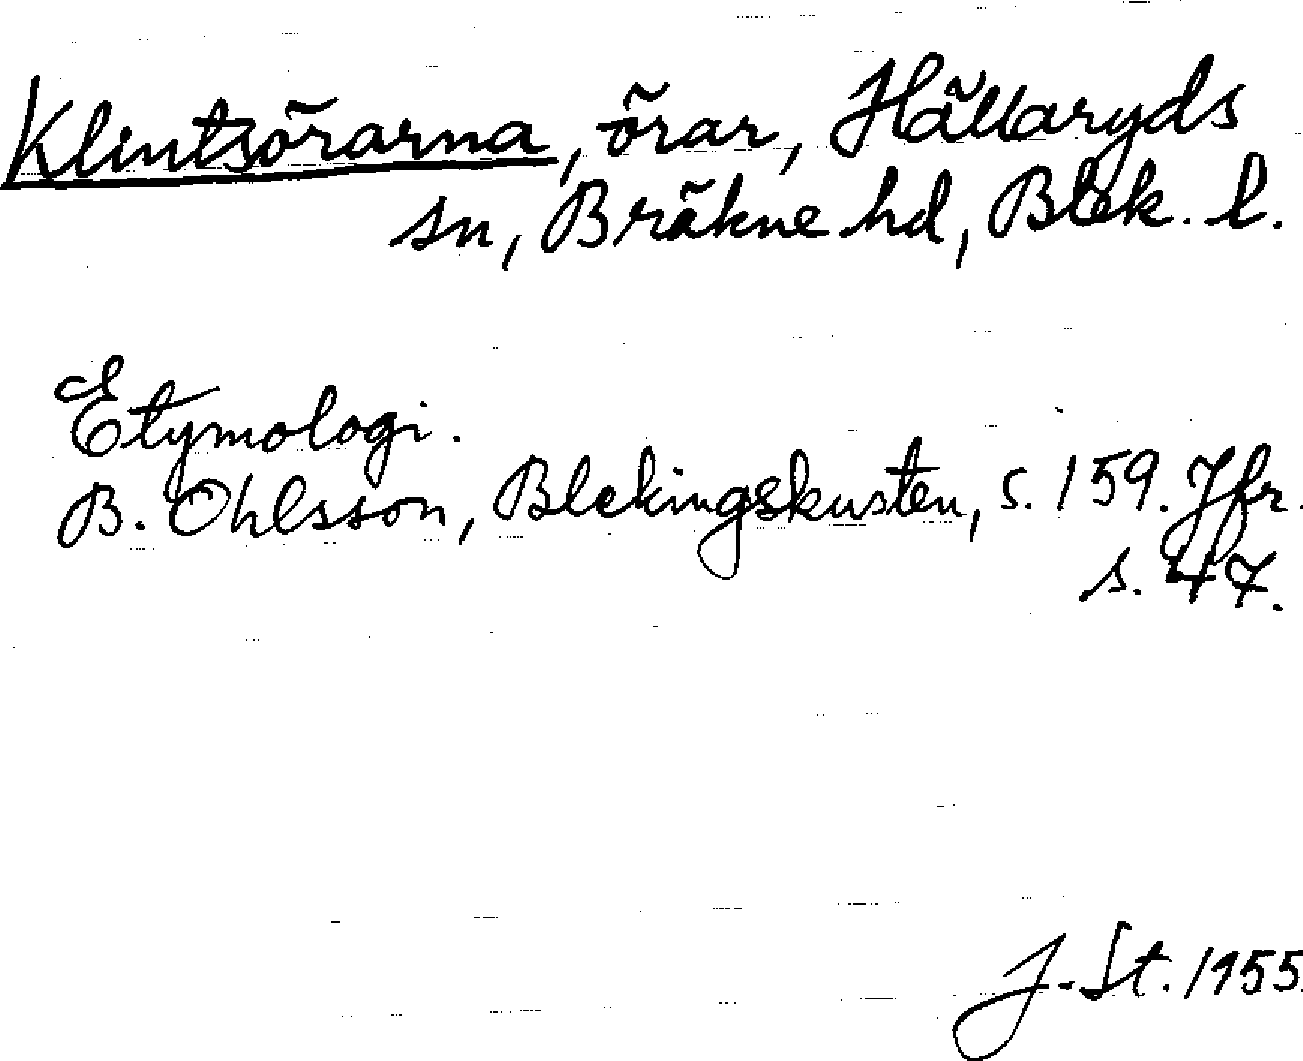 Klintsörarna, örar, Hällaryds
sn, Bräkne hd, Blek. l.
Etymologi.
B. Ohlsson, Blekingskusten, s. 159. Jfr
s. 47.
J. St. 1955